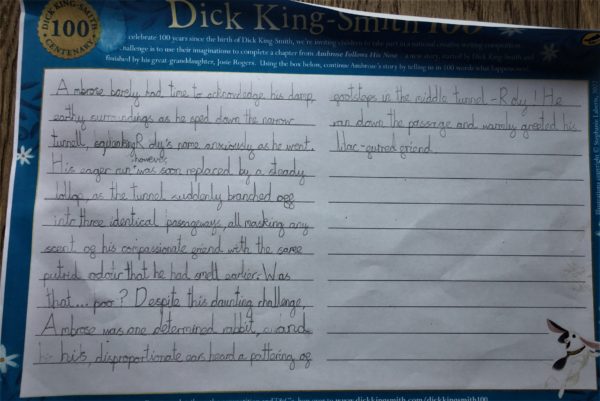 DICK KING-SMITH
100
CENTENARY
Dick King-Smith 100
celebrate 100 years since the birth of Dick King-Smith, we're inviting children to take part in a national creative writing competition.
challenge is to use their imaginations to complete a chapter from Ambrose Follows His Nose - a new story, started by Dick King-Smith and
finished by his great-granddaughter, Josie Rogers. Using the box below, continue Ambrose's story by telling us in 100 words what happens next!
Ambrose barely had time to acknowledge his damp
earthy surroundings as he sped down the narrow
tunnel, squeaking Roly's name anxiously as he went.
however,
His eager run was soon replaced by a steady
lollop, as the tunnel suddenly branched off
into three identical passageways, all masking any
scent of his compassionate friend with the same
putrid odour that he had smelt earlier. Was
that... poo? Despite this daunting challenge,
Ambrose was one determined rabbit, and
his, disproportionate ears heard a pattering of
footsteps in the middle tunnel - Roly! He
ran down the passage and warmly greeted his
friend.
www.dickkingsmith.com/dickkingsmith100